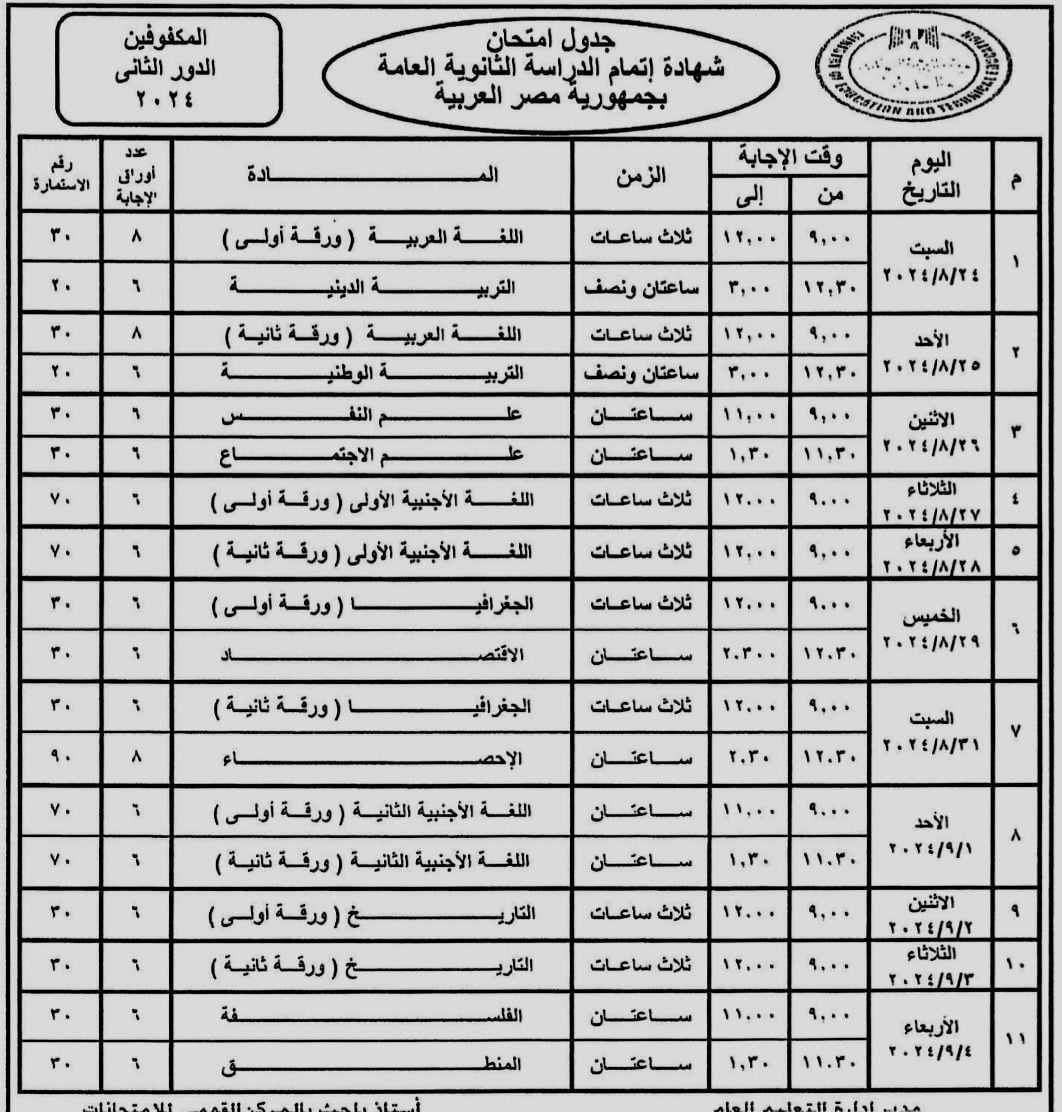 جدول امتحان
شهادة إتمام الدراسة الثانوية العامة
بجمهورية مصر العربية
المكفوفين
الدور الثانى
٢٠٢٤
م | اليوم التاريخ | وقت الإجابة من | إلى | الزمن | المـــــادة | عدد أوراق الإجابة | رقم الاستمارة
١ | السبت ٢٠٢٤/٨/٢٤ | ٩,٠٠ | ١٢,٠٠ | ثلاث ساعات | اللغة العربية ( ورقة أولى ) | ٨ | ٣٠
١٢,٣٠ | ٣,٠٠ | ساعتان ونصف | التربية الدينية | ٦ | ٢٠
٢ | الأحد ٢٠٢٤/٨/٢٥ | ٩,٠٠ | ١٢,٠٠ | ثلاث ساعات | اللغة العربية ( ورقة ثانية ) | ٨ | ٣٠
١٢,٣٠ | ٣,٠٠ | ساعتان ونصف | التربية الوطنية | ٦ | ٢٠
٣ | الاثنين ٢٠٢٤/٨/٢٦ | ٩,٠٠ | ١١,٠٠ | ساعتان | علم النفس | ٦ | ٣٠
١١,٣٠ | ١,٣٠ | ساعتان | علم الاجتماع | ٦ | ٣٠
٤ | الثلاثاء ٢٠٢٤/٨/٢٧ | ٩,٠٠ | ١٢,٠٠ | ثلاث ساعات | اللغة الأجنبية الأولى ( ورقة أولى ) | ٦ | ٧٠
٥ | الأربعاء ٢٠٢٤/٨/٢٨ | ٩,٠٠ | ١٢,٠٠ | ثلاث ساعات | اللغة الأجنبية الأولى ( ورقة ثانية ) | ٦ | ٧٠
٦ | الخميس ٢٠٢٤/٨/٢٩ | ٩,٠٠ | ١٢,٠٠ | ثلاث ساعات | الجغرافيا ( ورقة أولى ) | ٦ | ٣٠
١٢,٣٠ | ٢,٣٠٠ | ساعتان | الاقتصاد | ٦ | ٣٠
٧ | السبت ٢٠٢٤/٨/٣١ | ٩,٠٠ | ١٢,٠٠ | ثلاث ساعات | الجغرافيا ( ورقة ثانية ) | ٦ | ٣٠
١٢,٣٠ | ٢,٣٠ | ساعتان | الإحصاء | ٨ | ٩٠
٨ | الأحد ٢٠٢٤/٩/١ | ٩,٠٠ | ١١,٠٠ | ساعتان | اللغة الأجنبية الثانية ( ورقة أولى ) | ٦ | ٧٠
١١,٣٠ | ١,٣٠ | ساعتان | اللغة الأجنبية الثانية ( ورقة ثانية ) | ٦ | ٧٠
٩ | الاثنين ٢٠٢٤/٩/٢ | ٩,٠٠ | ١٢,٠٠ | ثلاث ساعات | التاريخ ( ورقة أولى ) | ٦ | ٣٠
١٠ | الثلاثاء ٢٠٢٤/٩/٣ | ٩,٠٠ | ١٢,٠٠ | ثلاث ساعات | التاريخ ( ورقة ثانية ) | ٦ | ٣٠
١١ | الأربعاء ٢٠٢٤/٩/٤ | ٩,٠٠ | ١١,٠٠ | ساعتان | الفلسفة | ٦ | ٣٠
١١,٣٠ | ١,٣٠ | ساعتان | المنطق | ٦ | ٣٠
مدير إدارة التعليم العام
أستاذ باحث بالمركز القومى للامتحانات